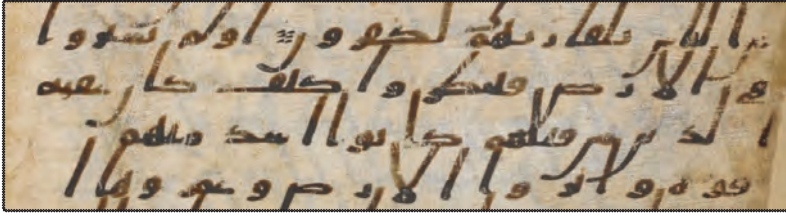 الناس بلقای ربهم لكفرون اولم يسيروا
في الارض فينظروا كيف كان عقبه
الذين من قبلهم كانوا اشد منهم
قوه واثاروا الارض وعمروها ا